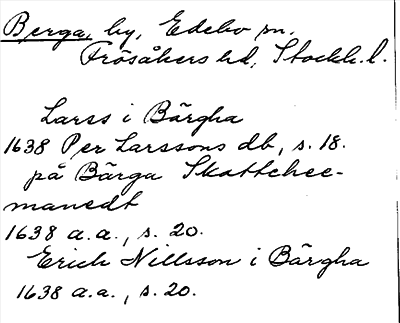 Berga, by, Edebo sn.
Frösåkers hd, Stockh. l.
Larss i Bärgha
1638 Per Larssons db, s. 18.
på Bärga Skattchee-
manedt
1638 a.a., s. 20.
Erich Nillsson i Bärgha
1638 a.a., s. 20.